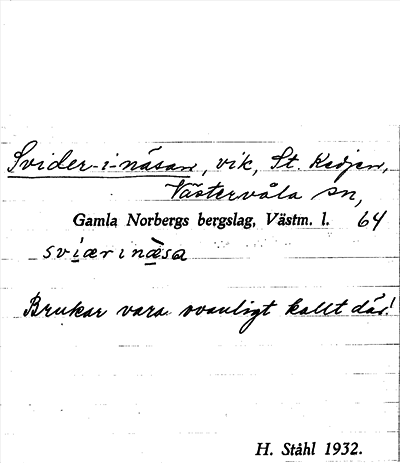 Svider-i-näsan, vik, St. Kedjen,
Västervåla sn,
Gamla Norbergs bergslag, Västm. l. 64
sviærinæsa
Brukar vara ovanligt kallt där!
H. Ståhl 1932.